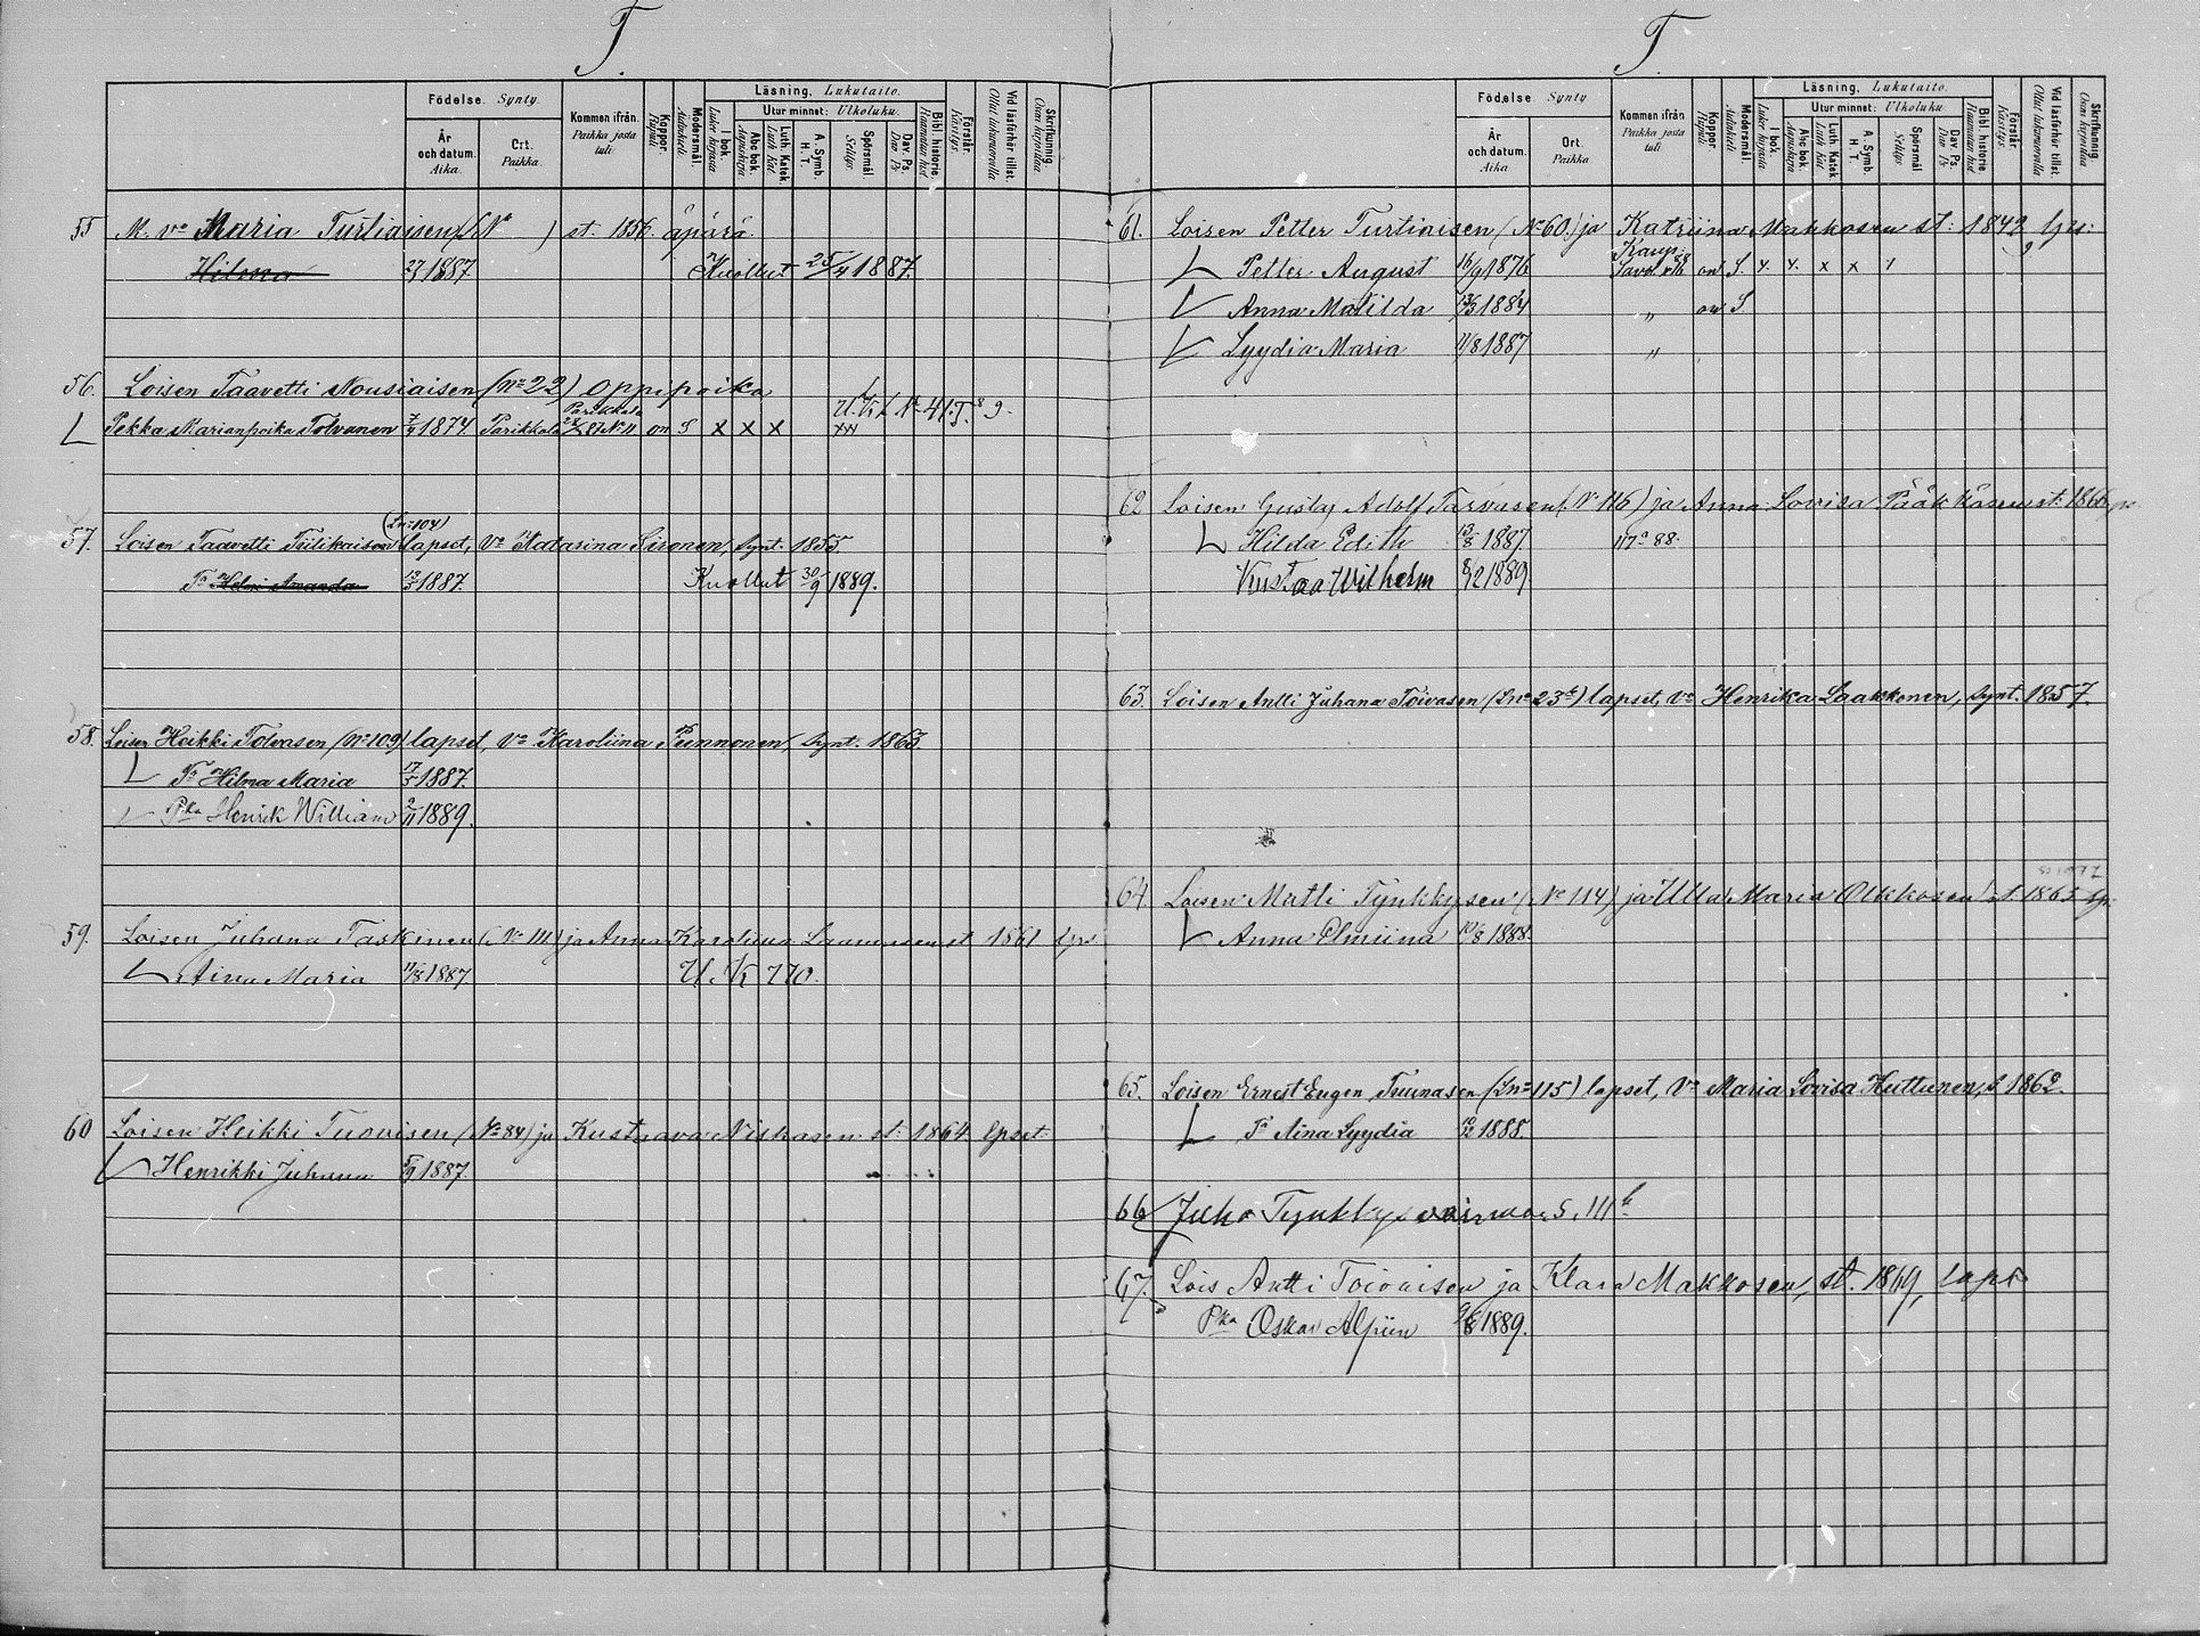 T.
Födelse. Synty.
Läsning. Lukutaito.
Utur minnet: Ulkoluku.
År och datum. Aika.
Ort. Paikka.
Kommen ifrån. Paikka josta tuli.
Koppor. Rupuli
Modersmål. Äidinkieli.
I bok. Lukee kirjasta
Abc bok. Aapiskirja
Luth. Katek. Luth. Kat.
A. Symb. H. T.
Spörsmål. Selitys.
Dav. Ps. Dav. Ps.
Bibl. historie. Raamatun hist.
Förstår. Käsitys.
Vid läsförhör tillst. Ollut lukuvuorolla
Skrifkunnig. Osaa kirjoittaa
55 M. vo Maria Turtiaisen (No ) st. 1856. äpärä.
Hilma 1887 Kuollut 25/4 1887.
56. Loisen Taavetti Nousiaisen (No 22) oppipoika
U. K. No 41. T. 9.
Parikkala
Pekka Marianpoika Tolvanen 7/4 1874. Parikkala 87 No 11 on S x x x xxx
(Lno 104)
57. Loisen Taavetti Tiilikaisen lapset, vo Katarina Sironen, Synt. 1855.
Tr Helmi Amanda 1887. Kuollut 30/9 1889.
58. Loisen Heikki Tolvasen (No 109) lapset, vo Karoliina Punnonen, Synt. 1863.
Tr Hilma Maria 17/5 1887.
Pka Henrik William 2/11 1889.
59. Loisen Juhana Taskinen (No 111) ja Anna Karoliina st 1861 lps
Aina Maria 11/8 1887. U. K 770.
60 Loisen Heikki Tuovisen (No 84) ja Kustaava Niskasen st: 1864 lpset:
Henrikki Juhana 5/9 1887.
T.
Födelse Synty
Läsning. Lukutaito.
Utur minnet: Ulkoluku.
År och datum. Aika.
Ort. Paikka
Kommen ifrån Paikka josta tuli
Koppor. Rupuli
Modersmål Äidinkieli
I bok. Lukee kirjasta
Abc bok. Aapiskirja
Luth. Katek Luth. Kat
A. Symb. H. T
Spörsmål Selitys
Dav. Ps. Dav. Ps
Bibl. historie Raamatun hist
Förstår. Käsitys.
Vid läsförhör tillst. Ollut lukuvuorolla
Skrifkunnig Osaa kirjoittaa
61. Loisen Petter Turtiaisen (No 60.) ja Katriina Makkosen st: 1842 lps:
Petter August 16/9 1876 on S. x x
Anna Matilda 1884 " on S
Lyydia Maria 11/8 1887 "
62 Loisen Gustaf Adolf Tarvasen (No 116) ja Anna Lovisa Pääkkäsen st. 1866
Hilda Edith 13/8 1887. 88.
Kustaa Wilhelm 8/2 1889.
63. Loisen Antti Juhana Toivasen (Lno 23) lapset, vo Henrika Laakkonen, Synt. 1857.
64. Loisen Matti Tynkkysen (No 114) ja Ulla Maria Olkkosen st. 1865 lps.
Anna Elmiina 10/8 1888.
65. Loisen Ernest Eugen Tuunasen (Lno 115) lapset, vo Maria Lovisa Huttunen, S 1862.
Tr Aina Lyydia 1888.
66 Juho Tynkkys vaimo S. 111
67. Lois Antti Toivaisen ja Klara Makkosen, st. 1869, laps
Pka Oskar Alpiin 9/8 1889.